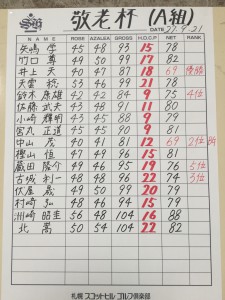 敬老杯 (A組)
DATE 27.9.21
NAME ROBE AZALEA GROSS H.D.C.P NET RANK
矢嶋 学 45 48 93 15 78
竹口 尊 49 50 99 17 82
井上 天 40 47 87 18 69 優勝
天雲 稔 53 46 99 21 78
鈴木 康雄 42 42 84 9 75 4位
佐藤 武夫 43 48 91 11 80
小崎 輝明 43 45 88
宮丸 正道 45 45 90 9 81
中山 茂 40 41 81 12 69 2位
樫山 恒 47 49 96 15 81
蔵田 隆介 49 46 95 19 76 5位
古城 利一 48 48 96 22 74 3位
伏屋 晟 49 50 99 20 79
村崎 弘 48 46 94 15 79
洲崎 昭圭 56 48 104 16 88
北 嵩 50 54 104 22 82
札幌 スコットヒル ゴルフ倶楽部